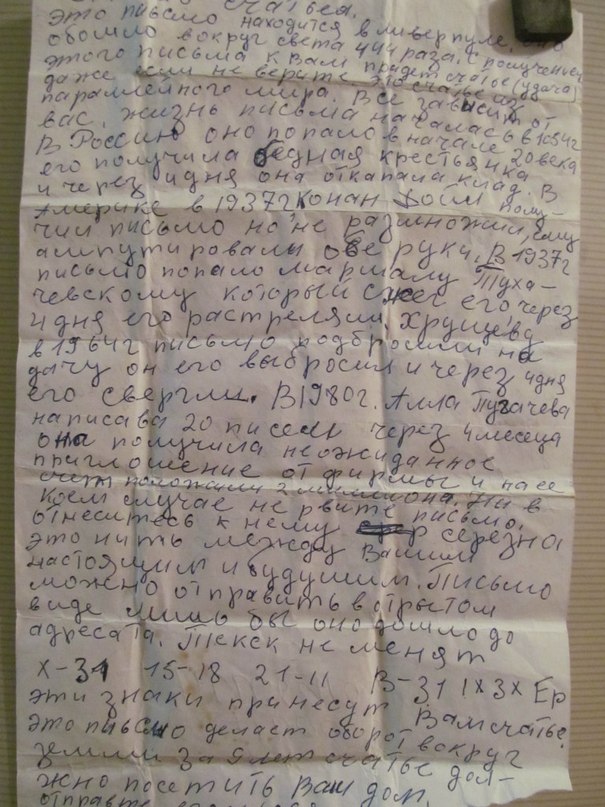 счастья.
это письмо находится в ливерпуле. оно
обошло вокруг света 444 раза. с получением
этого письма к Вам придет счатье (удача)
даже если не верите
параллейного мира. Все зависит от
вас. жизнь письма началась в 1054г
В Россию оно попало в начале 20 века
его получила бедная крестьянка
и через 4 дня она откапала клад. В
Америке в 1937г Конан Дойл полу-
чил письмо но не размножил, ему
ампутировали обе руки. В 1937г
письмо попало маршалу Туха-
чевскому который сжег его, через
4 дня его растреляли. Хрущеву
в 1964г письмо подбросили на
дачу он его выбросил и через 4дня
его свергли. В 1980г. Алла Пугачева
написава 20 писем через 4 месеца
она получила неожиданное
приглошение от фирмы и на ее
счет положили 2 миллиона. Ни в
коем случае не рвите письмо,
отнеситесь к нему серезна
это нить между Вашим
настоящим и будушим. Письмо
можно отправить в отрытом
виде лишь бы оно дошло до
адресата. Текск не менят
Х-31 15-18 21-11 В-31 1х3х Ер
эти знаки принесут Вам счатье.
это письмо делает оборот вокруг
земли за 9 лет счатье дол-
жно посетить Ваш дом
отправте